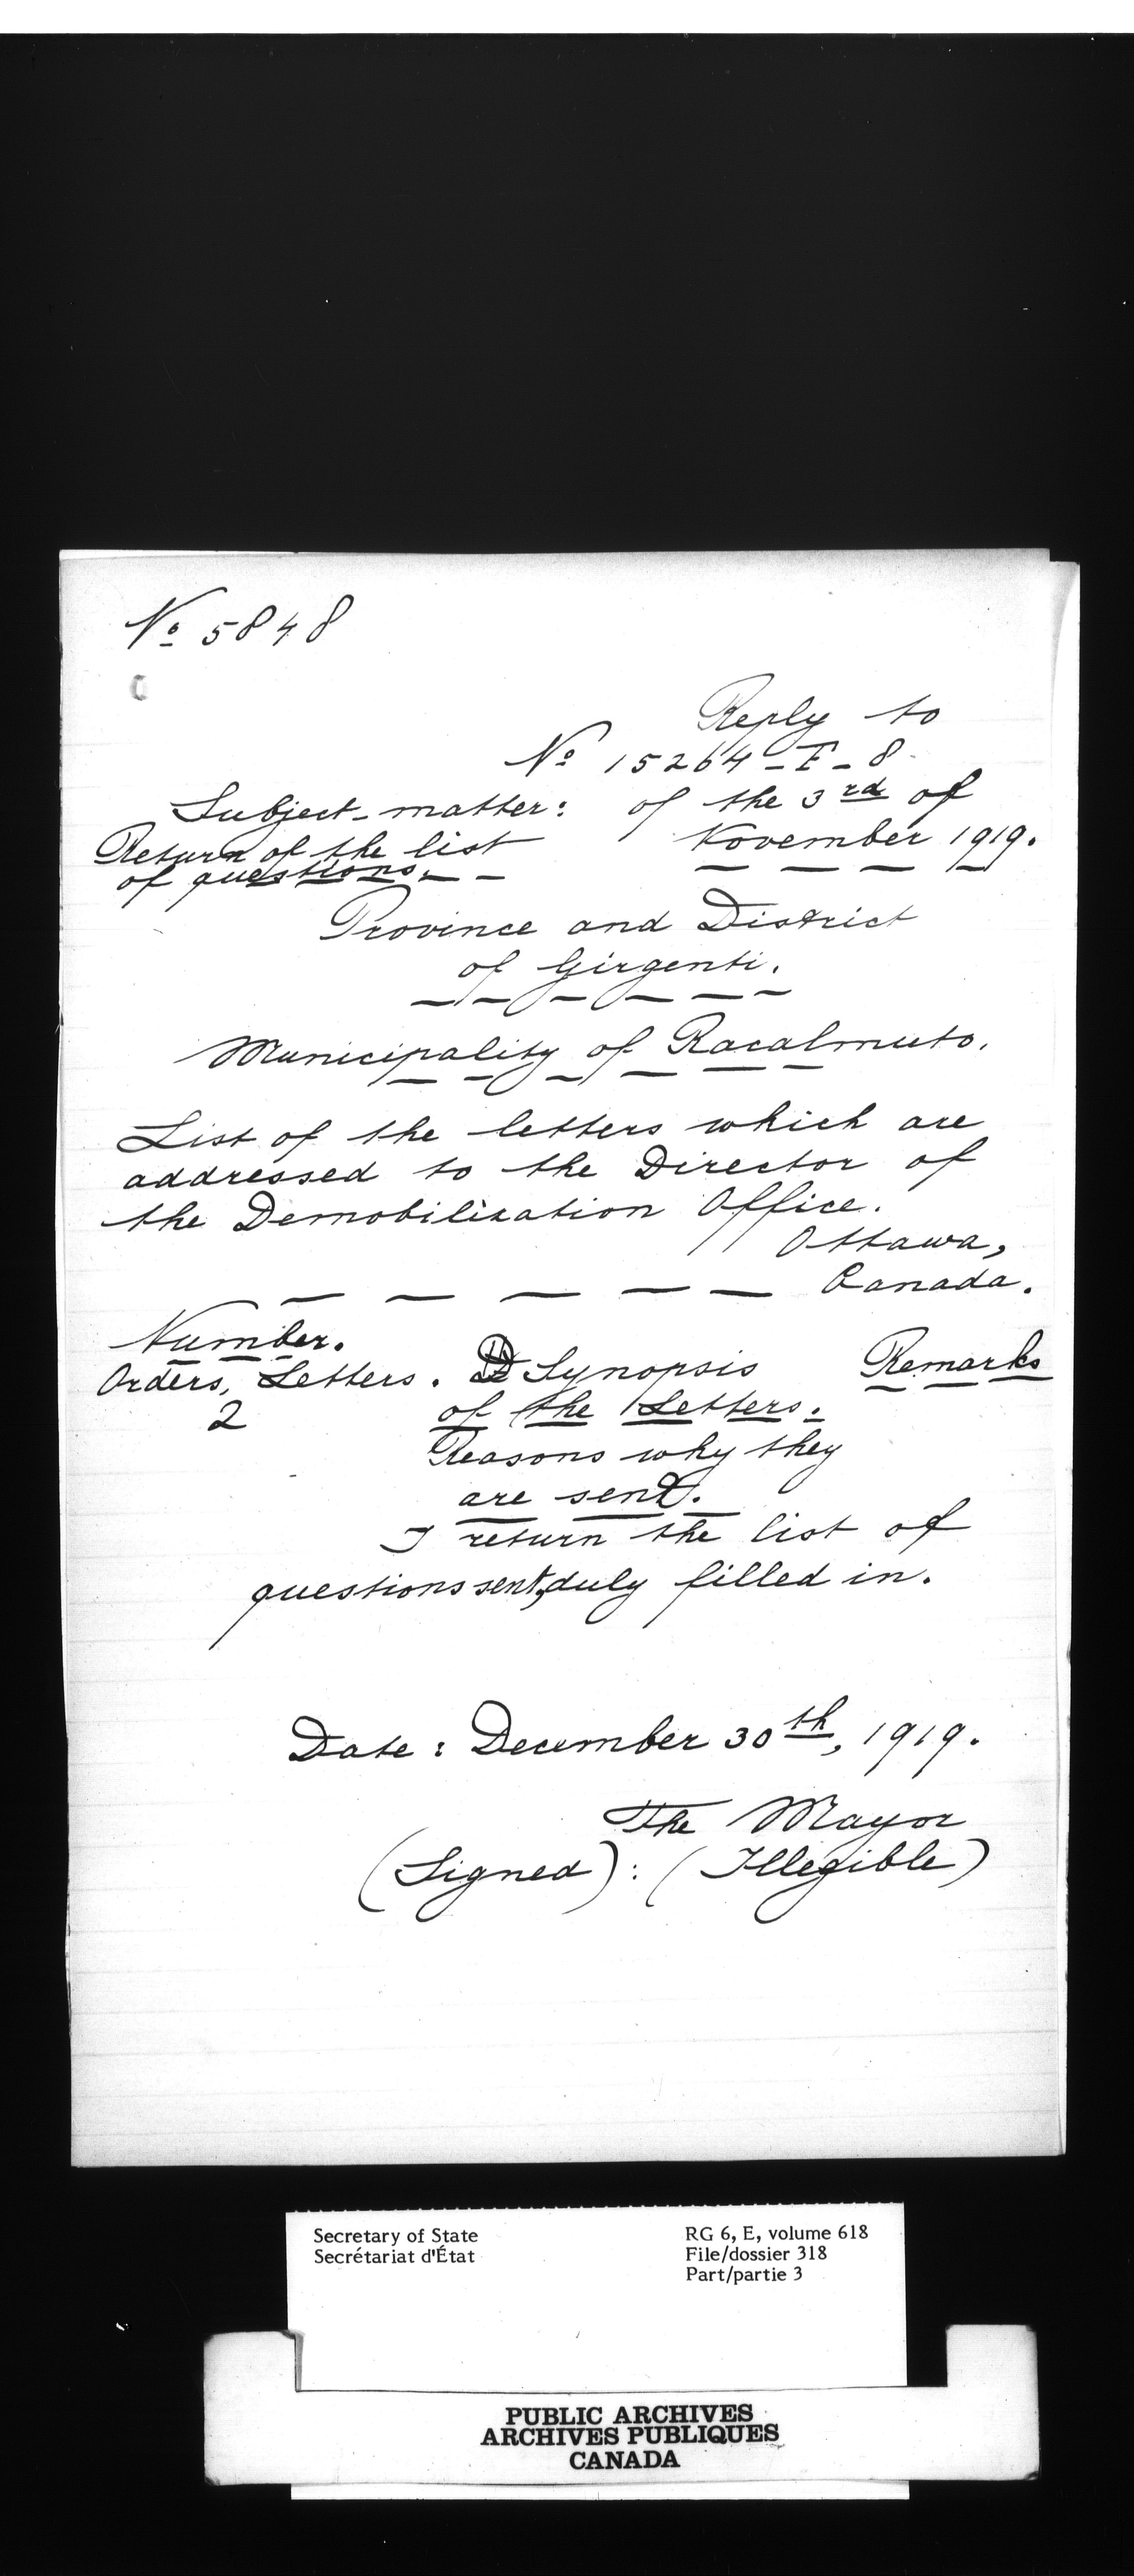 No 5848
Reply to
No 15264-F-8
Subject-matter: of the 3rd of
Return of the list November 1919.
of questions.
Province and District
of Girgenti.
Municipality of Racalmuto.
List of the letters which are
addressed to the Director of
the Demobilization Office.
Ottawa,
Canada.
Number.
Orders, Letters. Synopsis Remarks
2 of the Letters.
Reasons why they
are sent.
I return the list of
questions sent, duly filled in.
Date: December 30th, 1919.
The Mayor
(Signed): (Illegible)
Secretary of State RG 6, E, volume 618
Secrétariat d'État File/dossier 318
Part/partie 3
PUBLIC ARCHIVES
ARCHIVES PUBLIQUES
CANADA